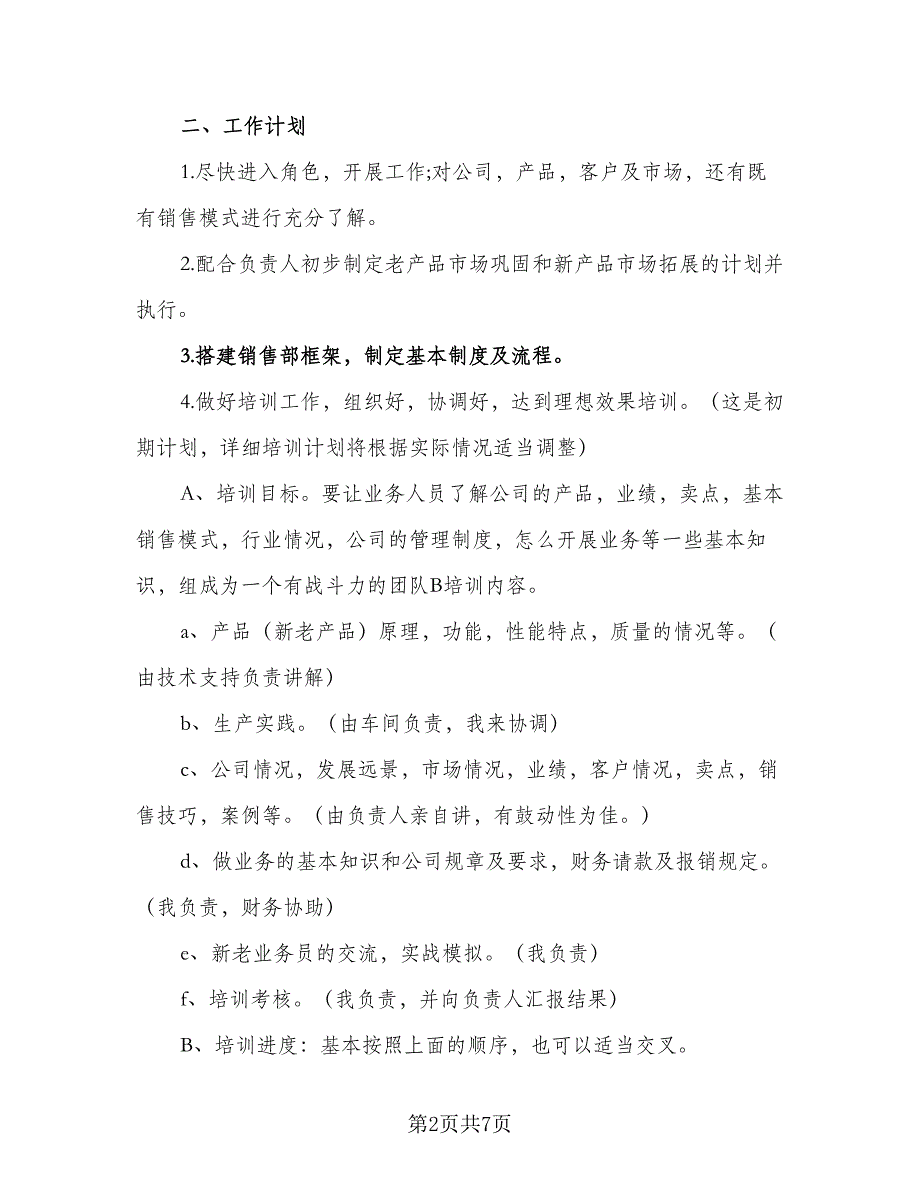 二、工作计划
1.尽快进入角色，开展工作;对公司，产品，客户及市场，还有既
有销售模式进行充分了解。
2.配合负责人初步制定老产品市场巩固和新产品市场拓展的计划并
执行。
3.搭建销售部框架，制定基本制度及流程。
4.做好培训工作，组织好，协调好，达到理想效果培训。（这是初
期计划，详细培训计划将根据实际情况适当调整）
A、培训目标。要让业务人员了解公司的产品，业绩，卖点，基本
销售模式，行业情况，公司的管理制度，怎么开展业务等一些基本知
识，组成为一个有战斗力的团队B培训内容。
a、产品（新老产品）原理，功能，性能特点，质量的情况等。（
由技术支持负责讲解）
b、生产实践。（由车间负责，我来协调）
c、公司情况，发展远景，市场情况，业绩，客户情况，卖点，销
售技巧，案例等。（由负责人亲自讲，有鼓动性为佳。）
d、做业务的基本知识和公司规章及要求，财务请款及报销规定。
（我负责，财务协助）
e、新老业务员的交流，实战模拟。（我负责）
f、培训考核。（我负责，并向负责人汇报结果）
B、培训进度：基本按照上面的顺序，也可以适当交叉。
第2页共7页